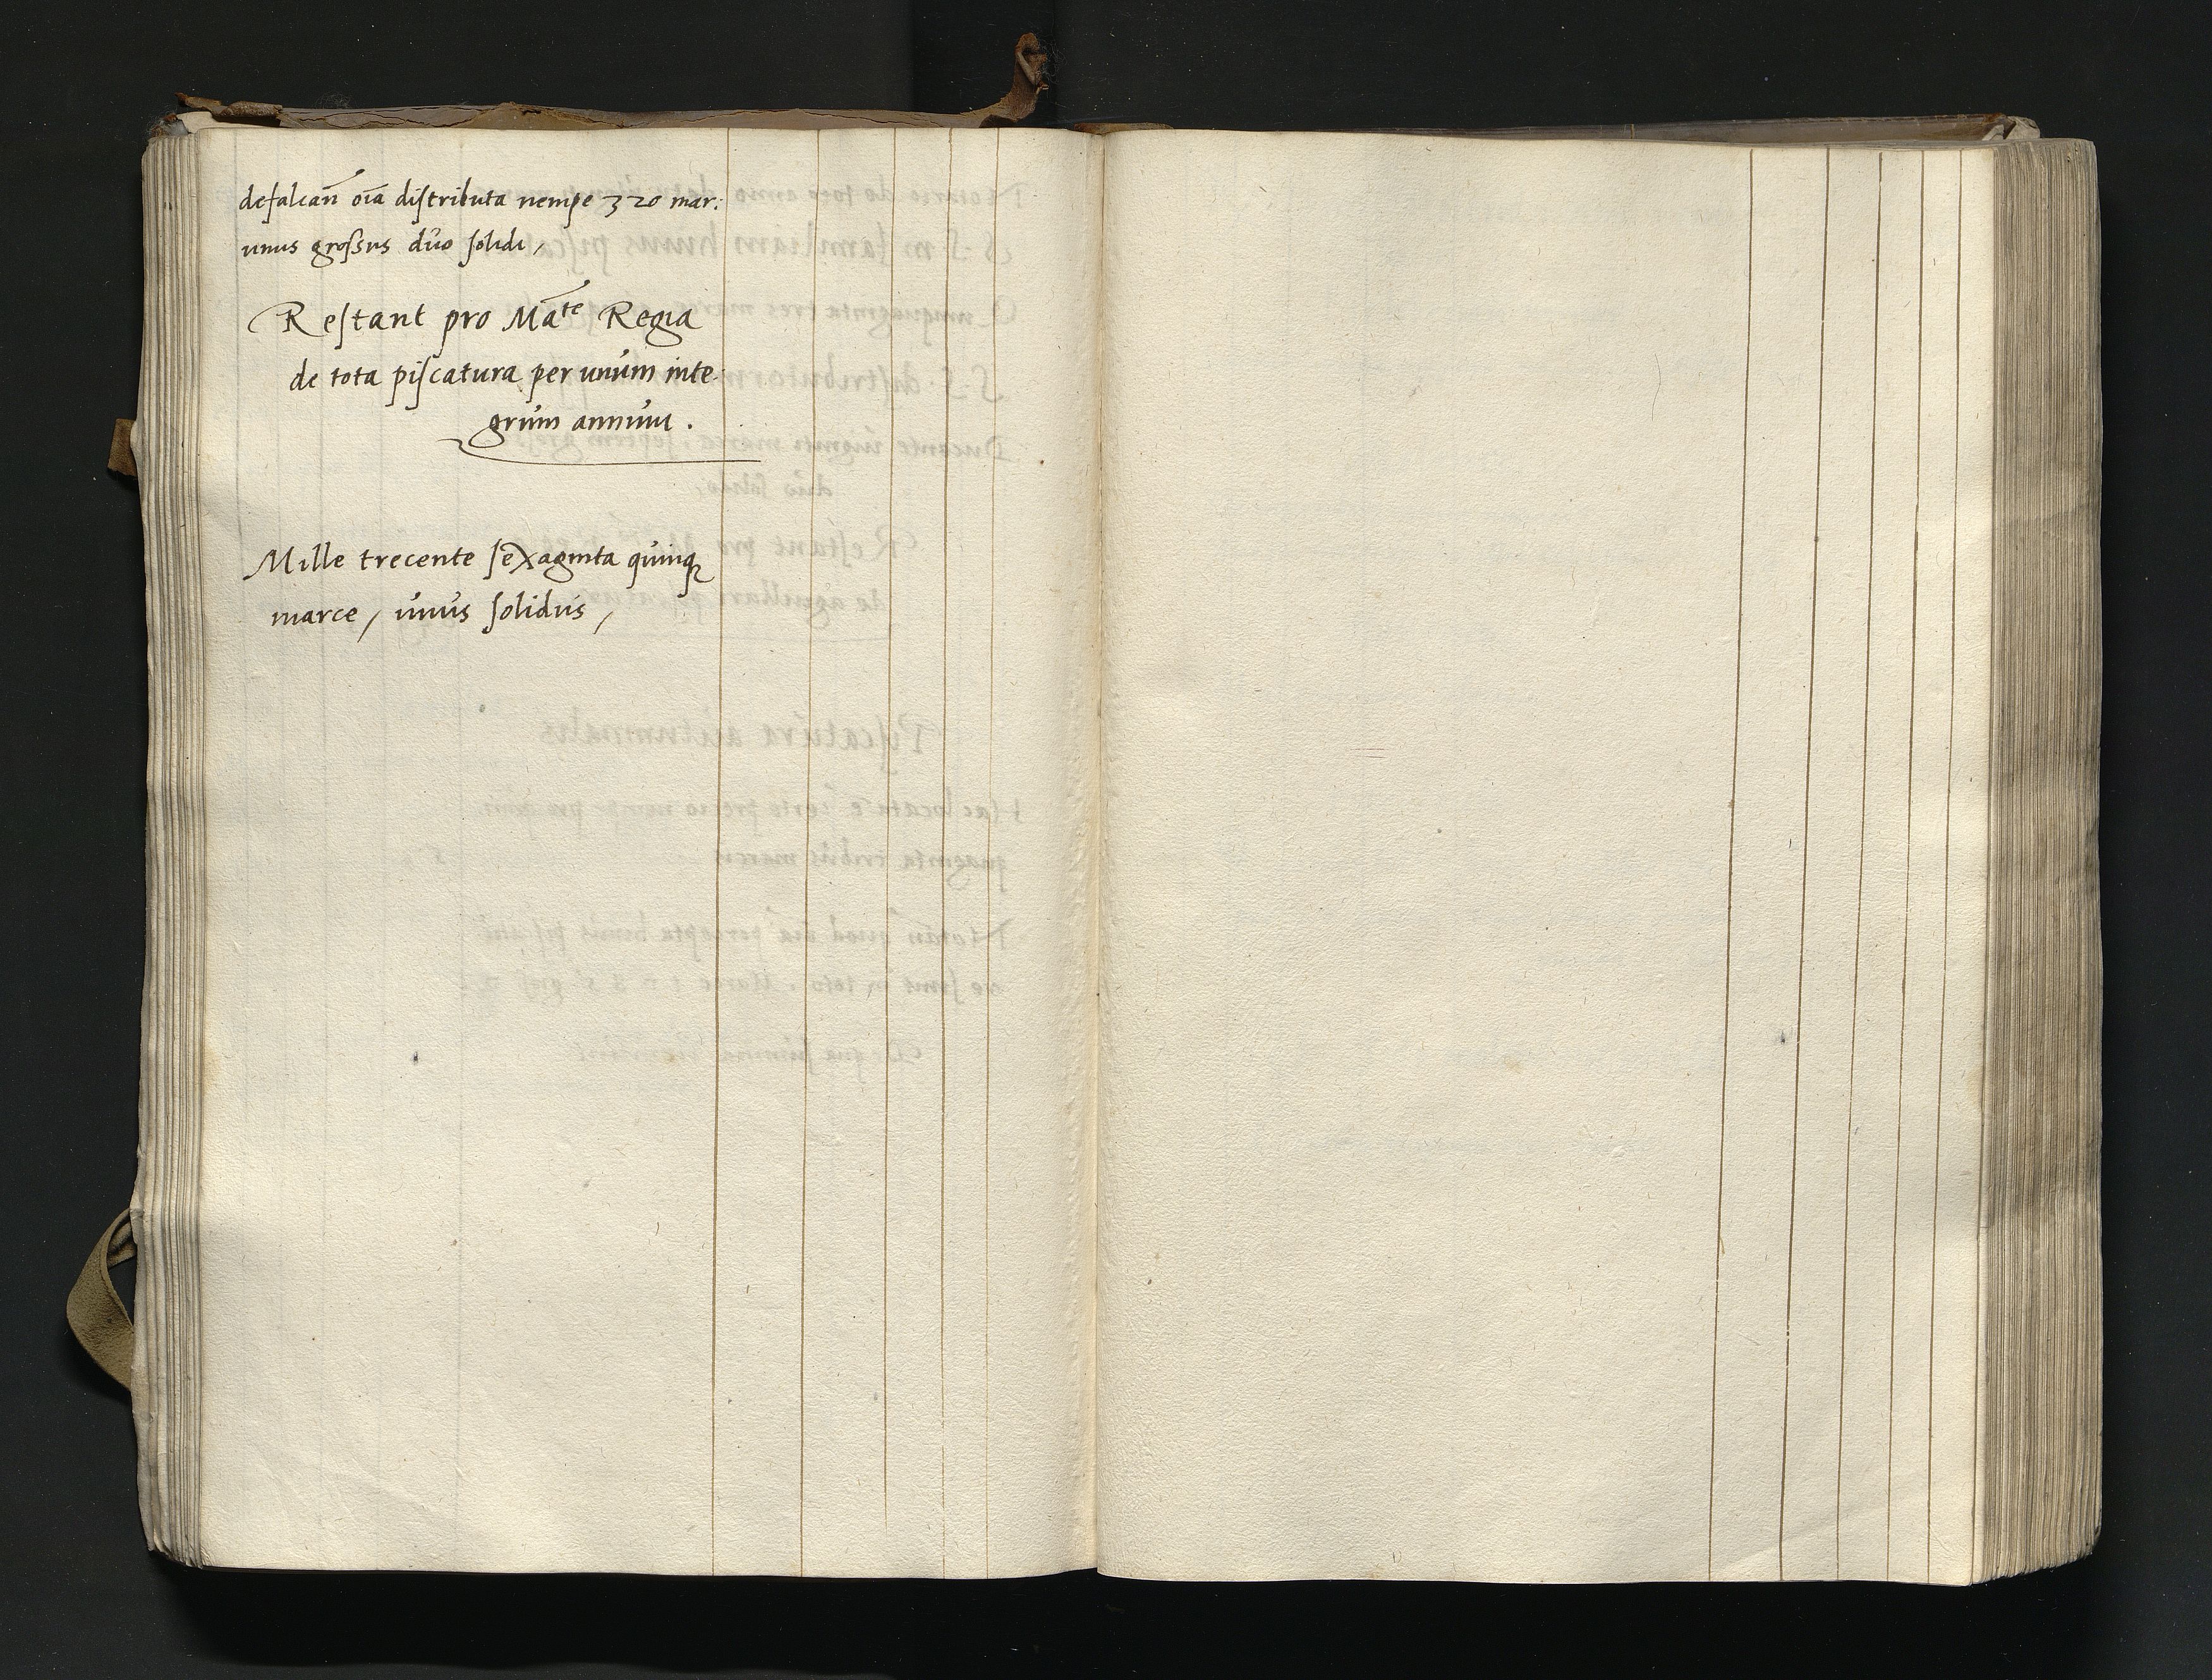 defalcan̄ oīa distributa nempe 320 mar:
unus grossus duo solidi /
Restant pro Maᵗᵉ Regia
de tota piscatura per unum inte-
grum annum.
Mille trecente sexaginta quinqꝫ
marce / unus solidus /